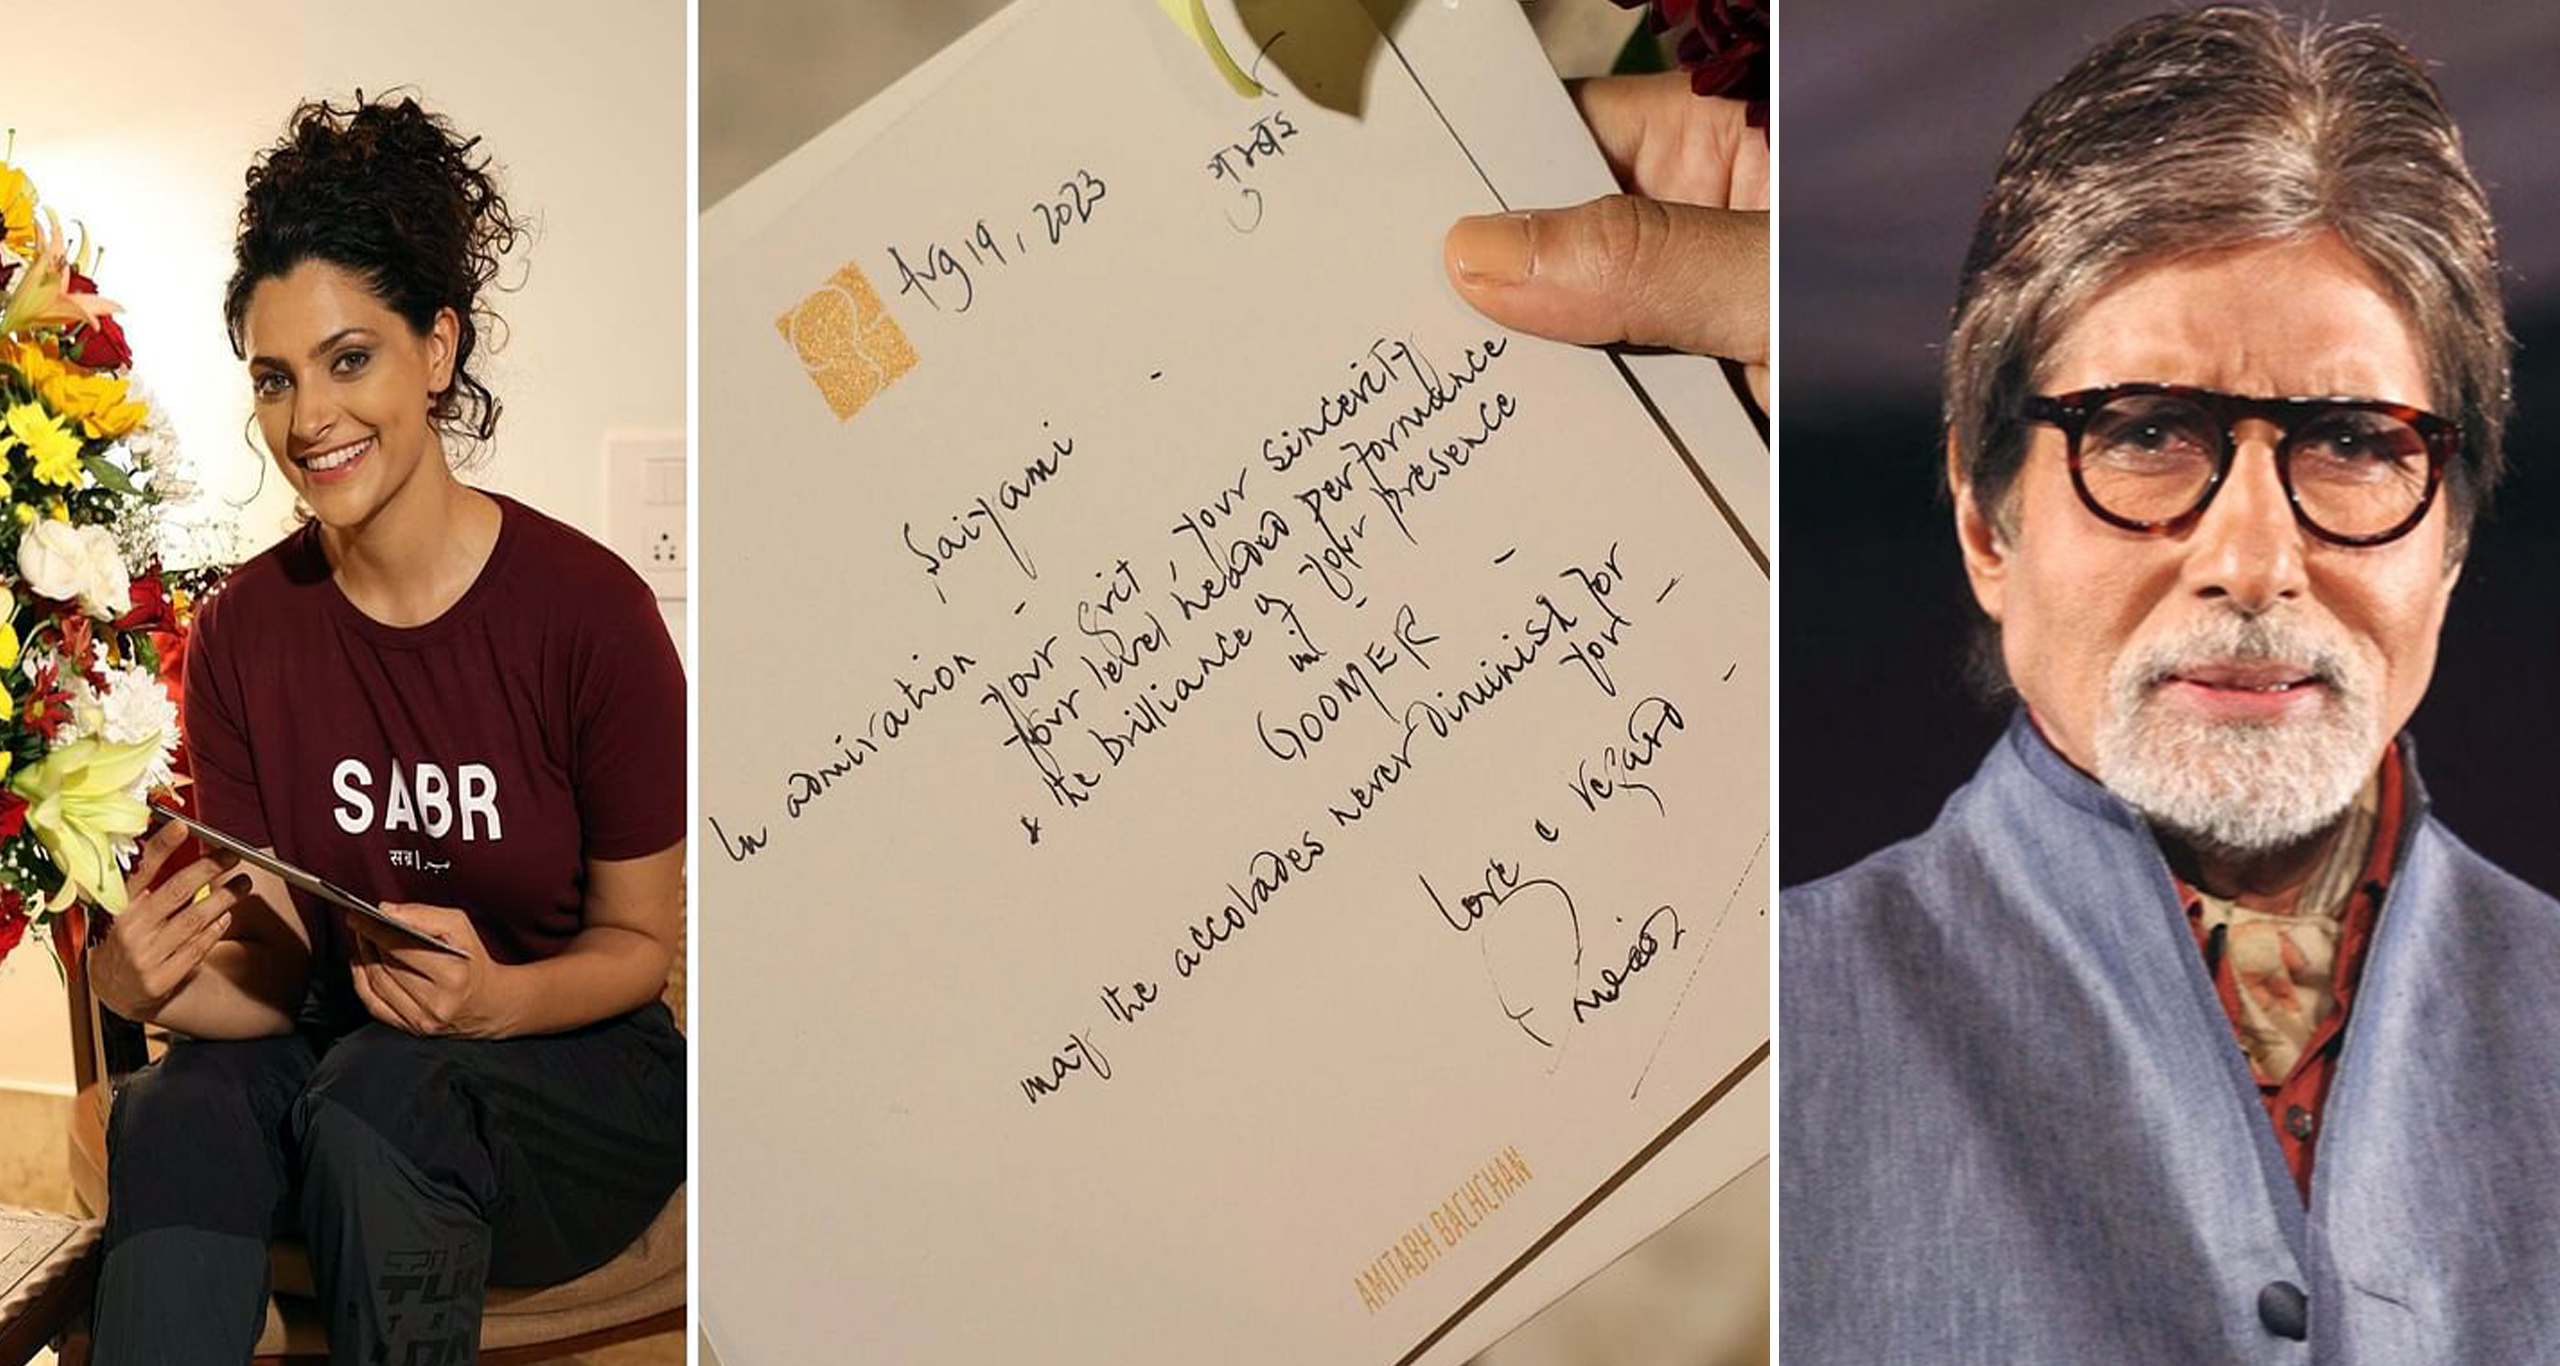 SABR
सब्र | صبر
Aug 19, 2023
मुम्बई
Saiyami -
In admiration -
your Grit, your sincerity
your level headed performance
& the brilliance of your presence
in -
GOOMER -
may the accolades never diminish for
you -
Love & regard -
AMITABH BACHCHAN